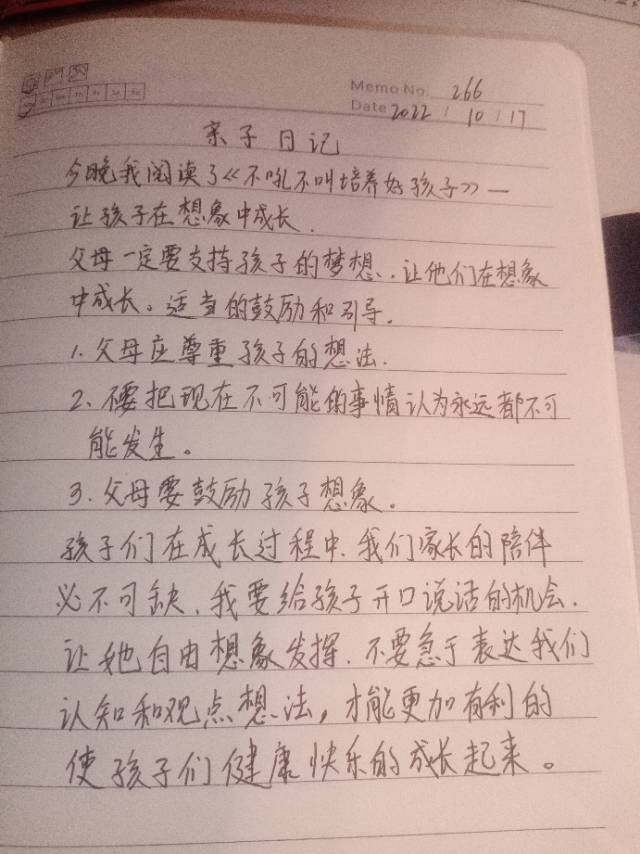 Memo No. 266
Date 2022 / 10 / 17
亲子日记
今晚我阅读了《不吼不叫培养好孩子》一
让孩子在想象中成长.
父母一定要支持孩子的梦想.,让他们在想象
中成长。适当的鼓励和引导.
1.父母应尊重孩子的想法.
2、不要把现在不可能的事情认为永远都不可
能发生。
3.父母要鼓励孩子想象。
孩子们在成长过程中.我们家长的陪伴
必不可缺.我要给孩子开口说话的机会.
让她自由想象发挥.不要急于表达我们
认知和观点想法,才能更加有利的
使孩子们健康快乐的成长起来。